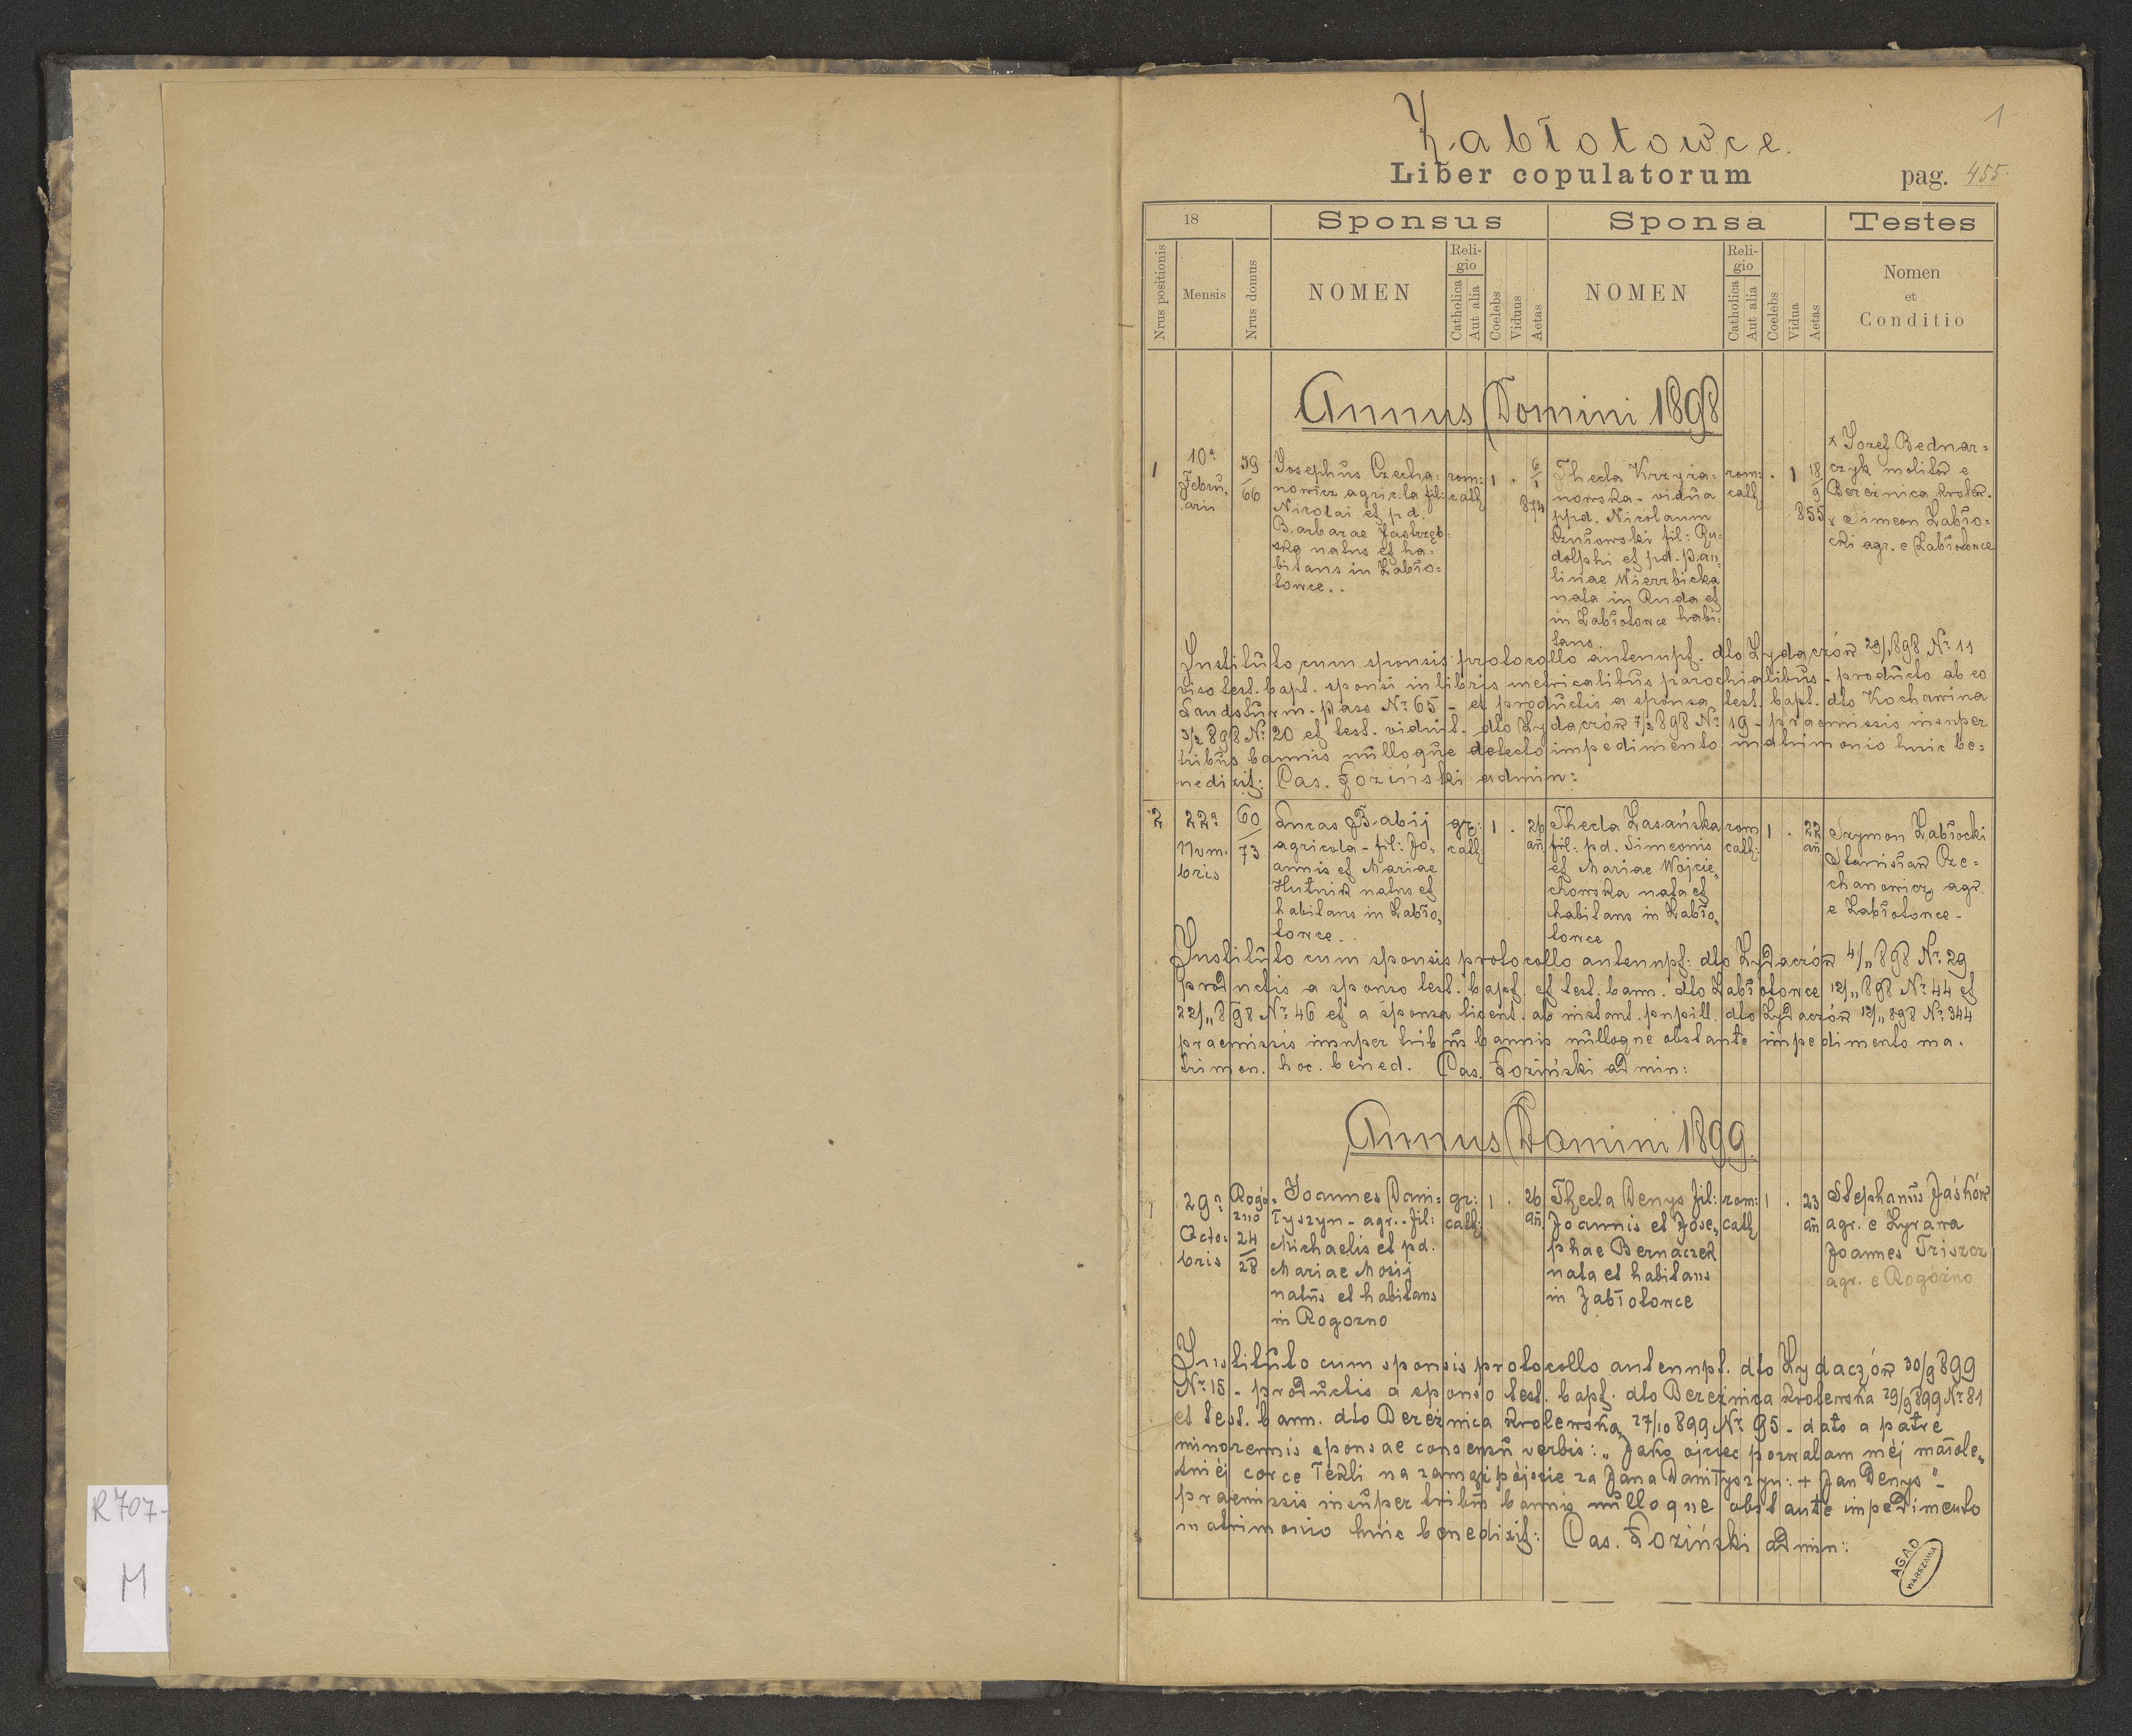 1
Zabłotowce.
Liber copulatorum
pag. 455.
18
Sponsus
Sponsa
Testes
Nrus positionis
Mensis
Nrus domus
NOMEN
Religio
Catholica
Aut alia
Coelebs
Viduus
Aetas
NOMEN
Religio
Catholica
Aut alia
Coelebs
Vidua
Aetas
Nomen
et
Conditio
Annus Domini 1898
1
10ª
Febru.
arii
59
66
Josephus Czecha=
nowicz agricola fil:
Nicolai et pd.
Barbarae Jastrzęb=
ska natus et ha=
bitans in Zabło=
towce..
rom:
cath
1 .
6
1
874
Thecla Krzyża=
nowska - vidua
ppd. Nicolaum
fil: Ru=
dolphi et pd. Pau=
linae Wierzbicka
nata in Ruda et
in Zabłotowce habi=
tans.
rom:
cath
. 1
18
9
855
x Józef Bednar=
czyk molitor e
Bereźnica królew.
x Simeon Zabło=
cki agr. e Zabłotowce
Instituto cum sponsis protocollo antenupt. dto Żydaczów 29/1 898 Nr 11
viso test. bapt. sponsi in libris metricalibus parochialibus - producto ab eo
Landsturm-pass Nr 65 - et productis a sponsa test. bapt. dto Kochawina
3/2 898 Nr 20 et test. viduit. dto Żydaczów 7/2 898 Nr 19 - praemissis insuper
tribus bannis nulloque detecto impedimento matrimonio huic be=
nedixit: Cas. Foziński admin:
2
22ª
Nvm.
bris
60
73
Lucas Babij
agricola - fil: Jo,
annis et Mariae
Hutnik natus et
habitans in Zabło,
towce..
gr:
cath:
1 .
26
añ
Thecla Zasańska
fil: pd. Simeonis
et Mariae Wojcie,
chowska nata et
habitans in Zabło,
towce
rom
cath:
1 .
22
añ
Szymon Zabłocki
Stanisław Cze=
chanowicz agr.
e Zabłotowce -
Instituto cum sponsis protocollo antenupt: dto Żydaczów 4/11 898 Nr 29
productis a sponso test. bapt. et test. bann. dto Zabłotowce 12/11 898 Nr 44 et
22/11 898 Nr 46 et a sponsa licent. ab instant. pupill. dto Żydaczów 12/11 898 Nr 344
praemissis insuper tribus bannis nulloque obstante impedimento ma.
trimon. hoc. bened. Cas. Foziński admin:
Annus Domini 1899.
1
29ª
Octo:
bris
Rogó=
zno
24
28
Joannes Dani=
łyszyn - agr. - fil:
Michaelis et pd.
Mariae Mosij
natus et habitans
in Rogozno
gr:
cath:
1 .
26
añ
Thecla Denys fil:
Joannis et Jose,
phae Bernaczek
nata et habitans
in Zabłotowce
rom:
cath
1 .
23
añ
Stephanus Jaśków
agr. e Żyrawa
Joannes Triszcz
agr. e Rogóźno
Instituto cum sponsis protocollo antenupt. dto Żydaczów 30/9 899
Nr 15 - productis a sponso test. bapt. dto Bereźnica królewska 29/9 899 Nr 81
et test. bann. dto Bereźnica królewska 27/10 899 Nr 95 - dato a patre
minorennis sponsae consensu verbis: „Jako ojciec pozwalam mej małole„
tniéj córce Tekli na zamąż pójście za Jana Daniłyszyn: + Jan Denys" -
praemissis insuper tribus bannis nulloque obstante impedimento
matrimonio huic benedixit: Cas. Foziński admin:
AGAD
WARSZAWA
R 707-
M